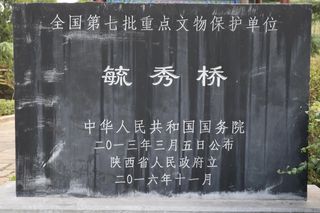 全国第七批重点文物保护单位
毓秀桥
中华人民共和国国务院
二〇一三年三月五日公布
陕西省人民政府立
二〇一六年十一月